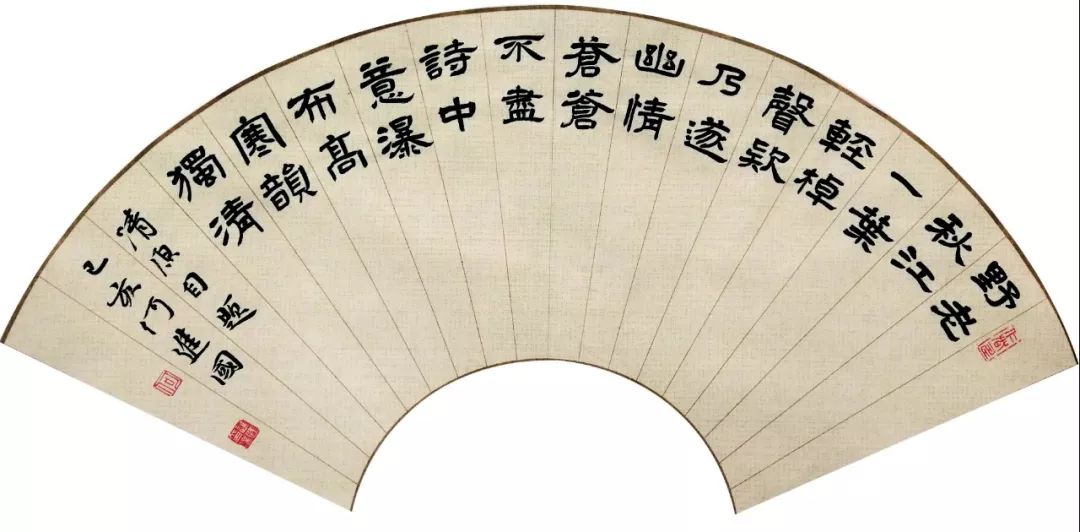 野老
秋江
一葉
輕棹
聲欵
乃遂
幽情
蒼蒼
不盡
詩中
意瀑
布高
寒韻
獨清
清原自題
己亥何進國